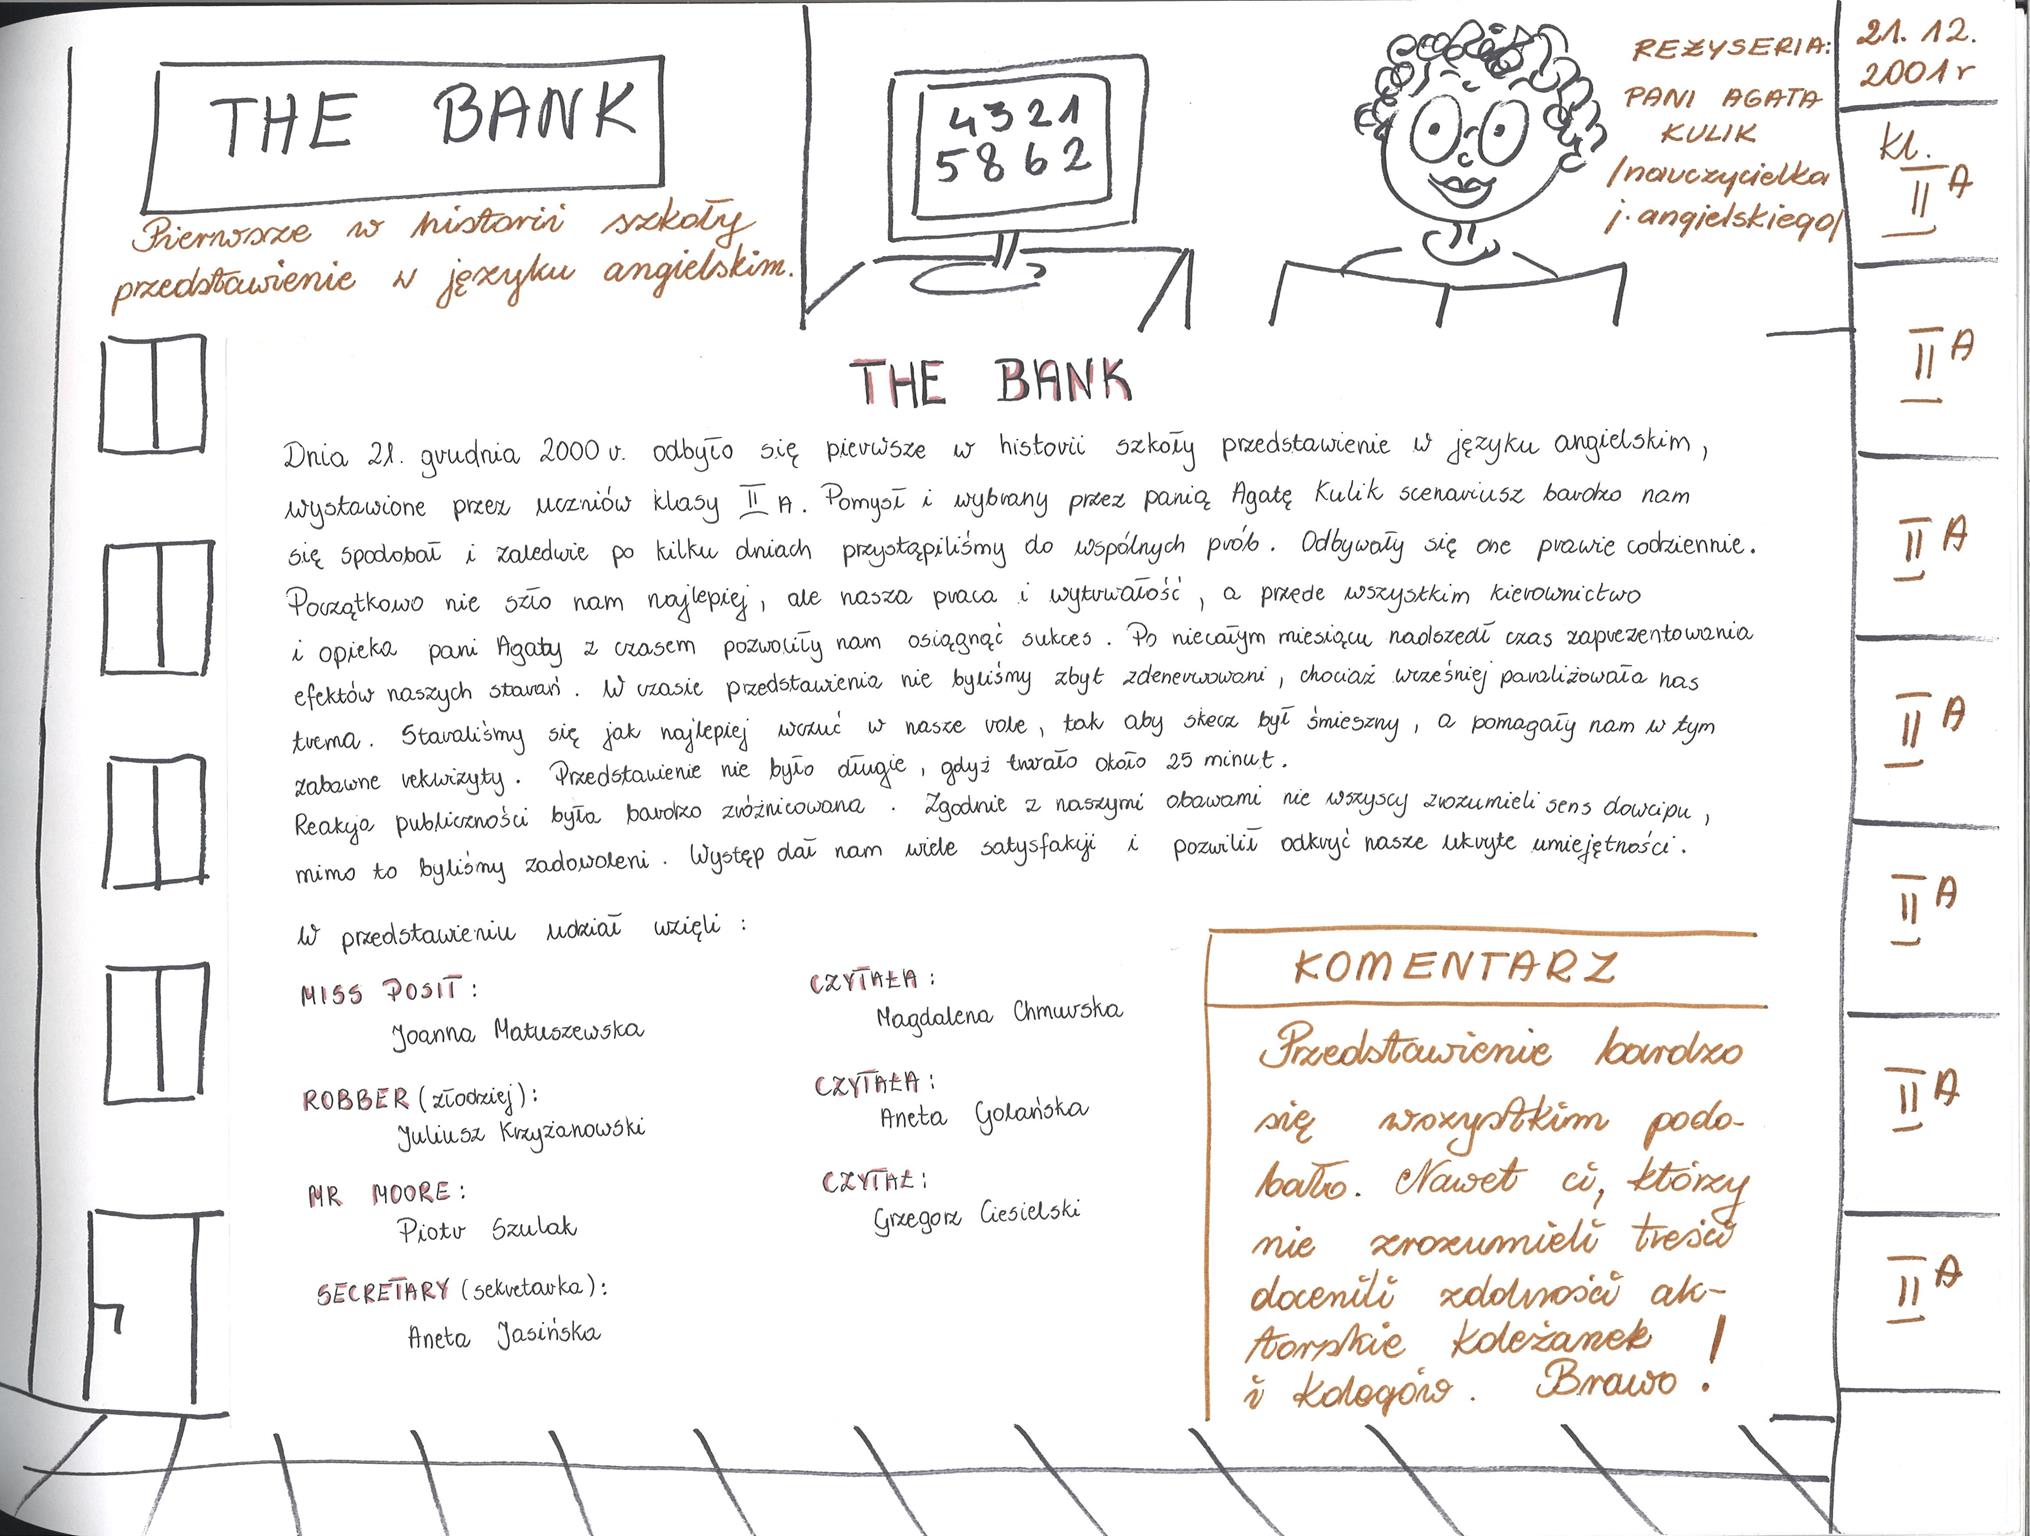 THE BANK
Pierwsze w historii szkoły
przedstawienie w języku angielskim.
4321
5862
REŻYSERIA:
PANI AGATA
KULIK
/nauczycielka
j. angielskiego/
21. 12.
2001 r
kl.
II A
II A
II A
II A
II A
II A
II A
THE BANK
Dnia 21. grudnia 2000 r. odbyło się pierwsze w historii szkoły przedstawienie w języku angielskim,
wystawione przez uczniów klasy II A. Pomysł i wybrany przez panią Agatę Kulik scenariusz bardzo nam
się spodobał i zaledwie po kilku dniach przystąpiliśmy do wspólnych prób. Odbywały się one prawie codziennie.
Początkowo nie szło nam najlepiej, ale nasza praca i wytrwałość, a przede wszystkim kierownictwo
i opieka pani Agaty z czasem pozwoliły nam osiągnąć sukces. Po niecałym miesiącu nadszedł czas zaprezentowania
efektów naszych starań. W czasie przedstawienia nie byliśmy zbyt zdenerwowani, chociaż wcześniej paraliżowała nas
trema. Staraliśmy się jak najlepiej wczuć w nasze role, tak aby skecz był śmieszny, a pomagały nam w tym
zabawne rekwizyty. Przedstawienie nie było długie, gdyż trwało około 25 minut.
Reakcja publiczności była bardzo zróżnicowana. Zgodnie z naszymi obawami nie wszyscy zrozumieli sens dowcipu,
mimo to byliśmy zadowoleni. Występ dał nam wiele satysfakcji i pozwilił odkryć nasze ukryte umiejętności.
W przedstawieniu udział wzięli:
MISS POSIT:
Joanna Matuszewska
ROBBER (złodziej):
Juliusz Krzyżanowski
MR MOORE:
Piotr Szulak
SECRETARY (sekretarka):
Aneta Jasińska
CZYTAŁA:
Magdalena Chmurska
CZYTAŁA:
Aneta Golańska
CZYTAŁ:
Grzegorz Ciesielski
KOMENTARZ
Przedstawienie bardzo
się wszystkim podo-
bało. Nawet ci, którzy
nie zrozumieli treści
docenili zdolności ak-
torskie koleżanek
i kolegów. Brawo!